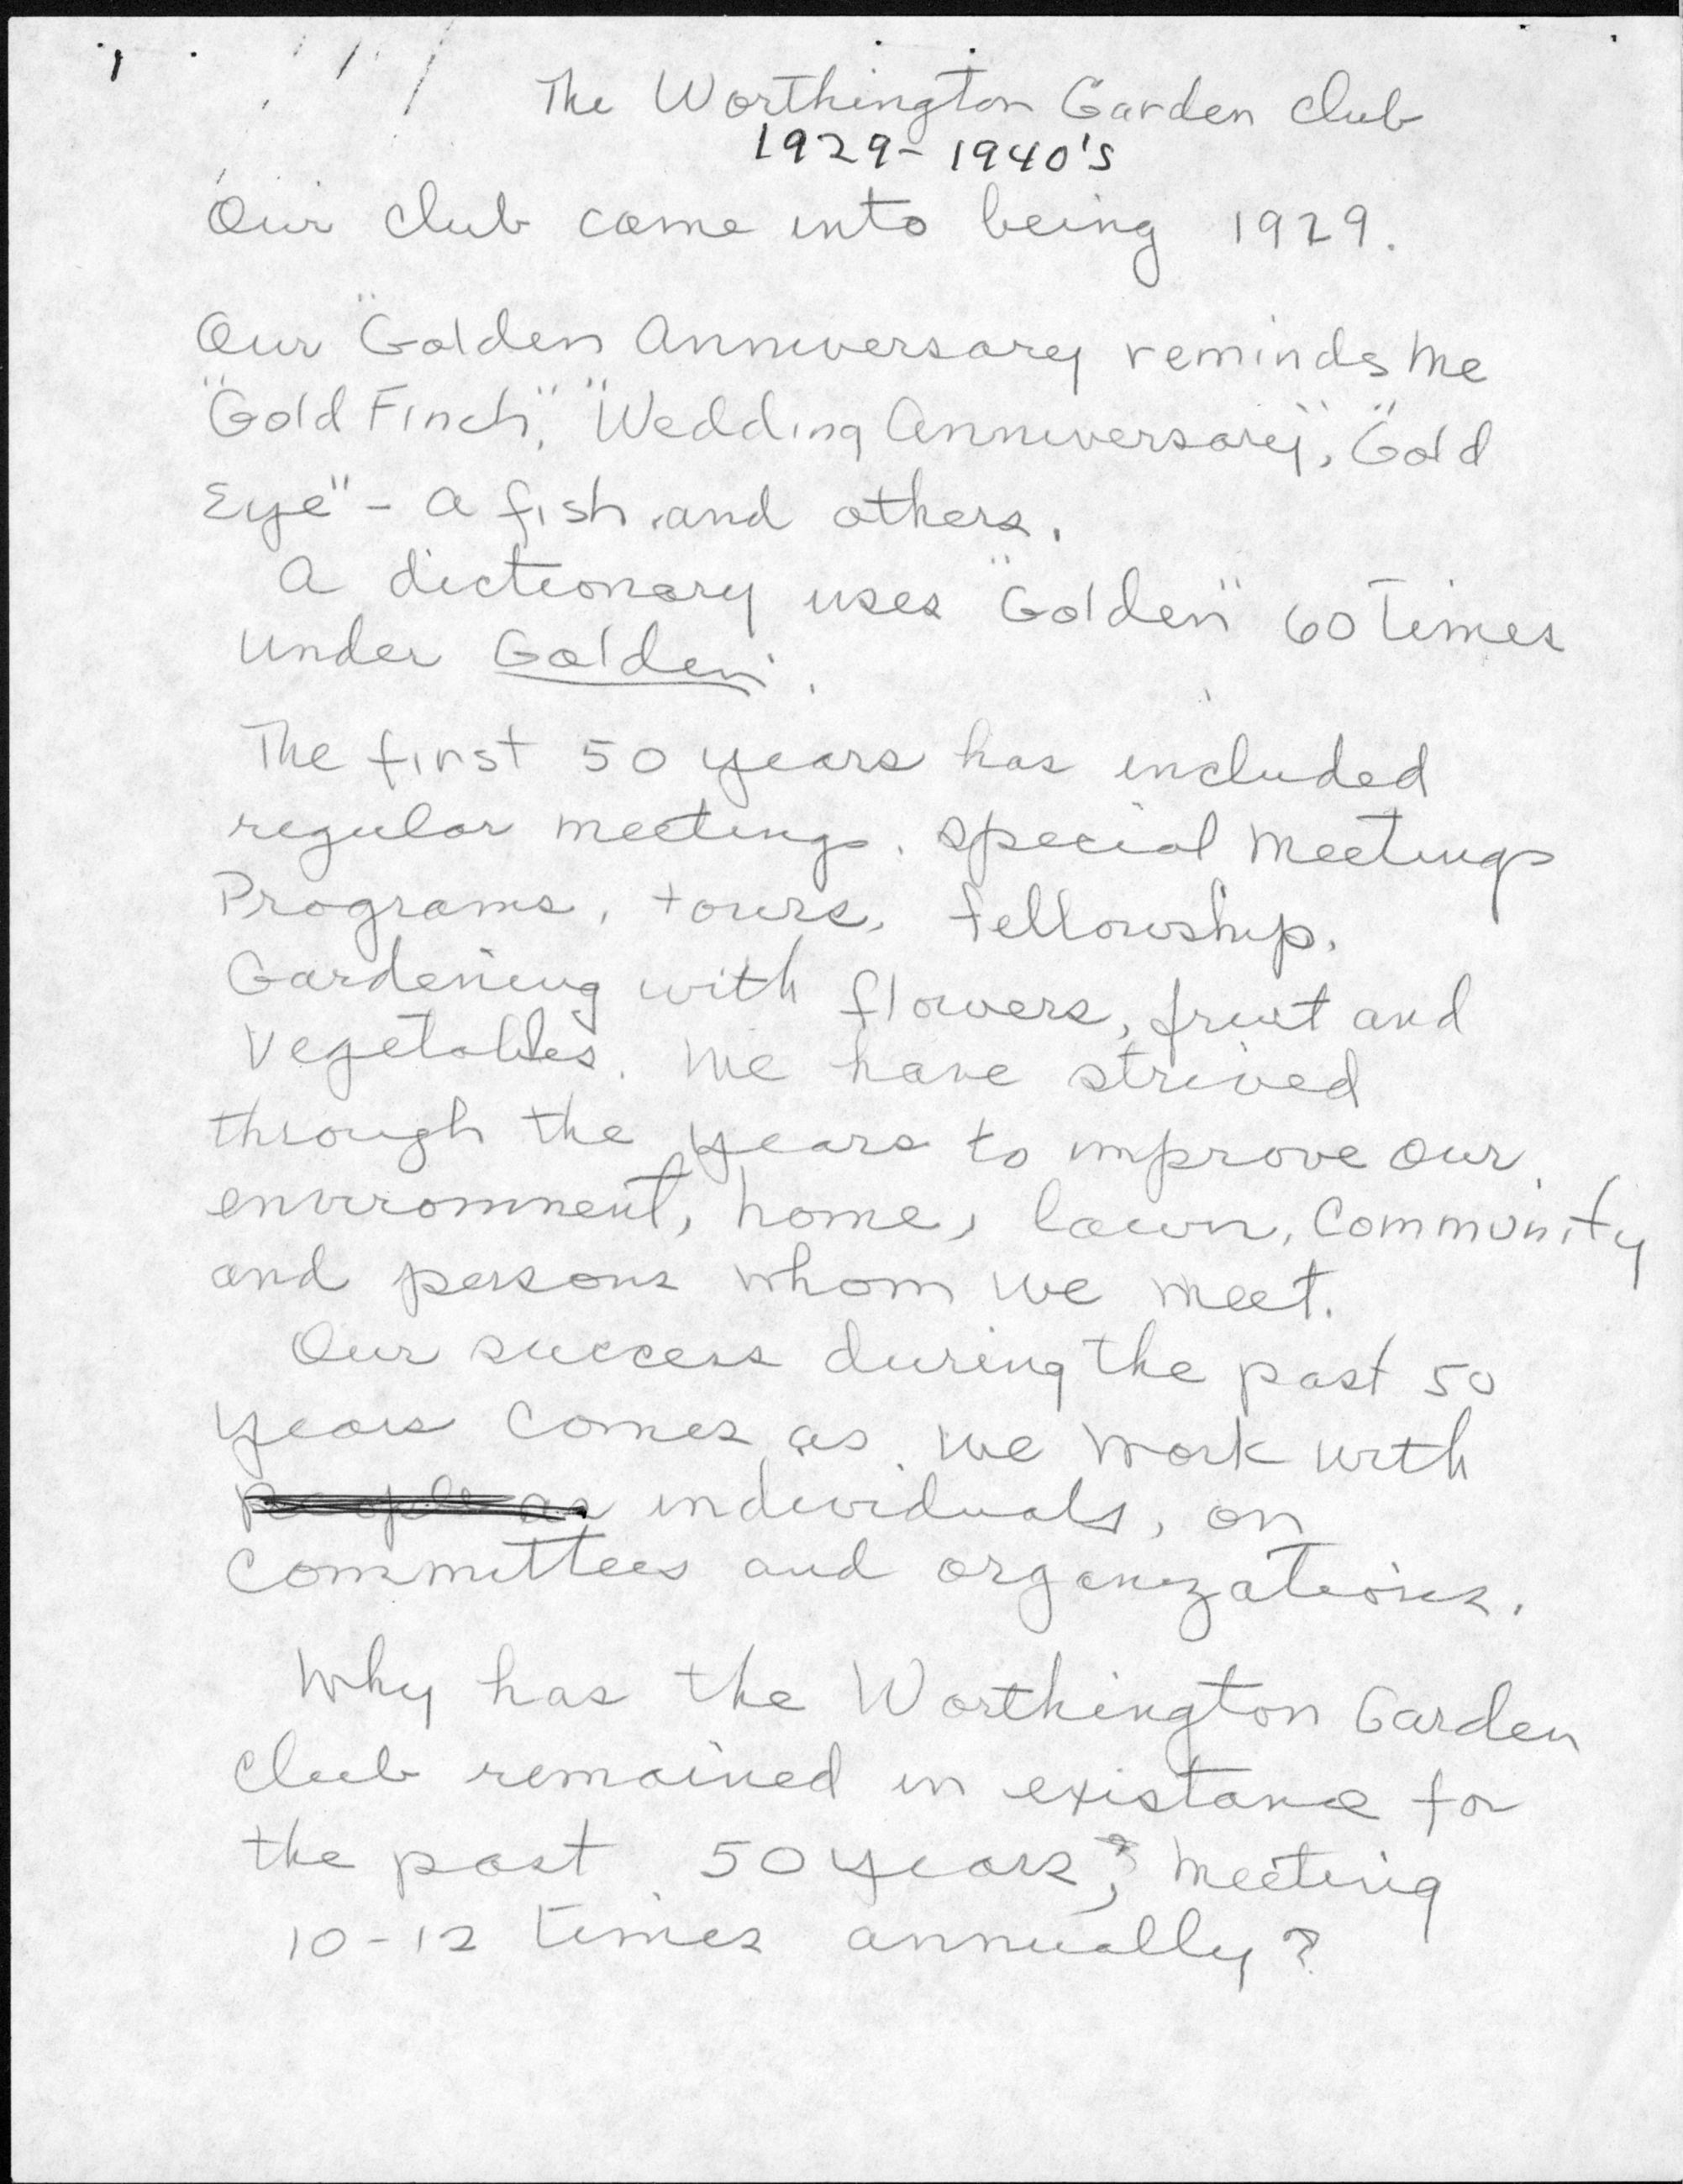 The Worthington Garden Club
1929-1940's
Our club came into being 1929.
Our "Golden Anniversary reminds me
"Gold Finch", "Wedding Anniversary", "Gold
Eye" - a fish and others.
A dictionary uses "Golden" 60 times
under Golden.
The first 50 years has included
regular meetings, special meetings
Programs, tours, fellowship.
Gardening with flowers, fruit and
Vegetables. We have strived
through the years to improve our
environment, home, lawn, community
and persons whom we meet.
Our success during the past 50
years comes as we work with
people as individuals, on
committees and organizations.
Why has the Worthington Garden
Club remained in existance for
the past 50 years, meeting
10-12 times annually?